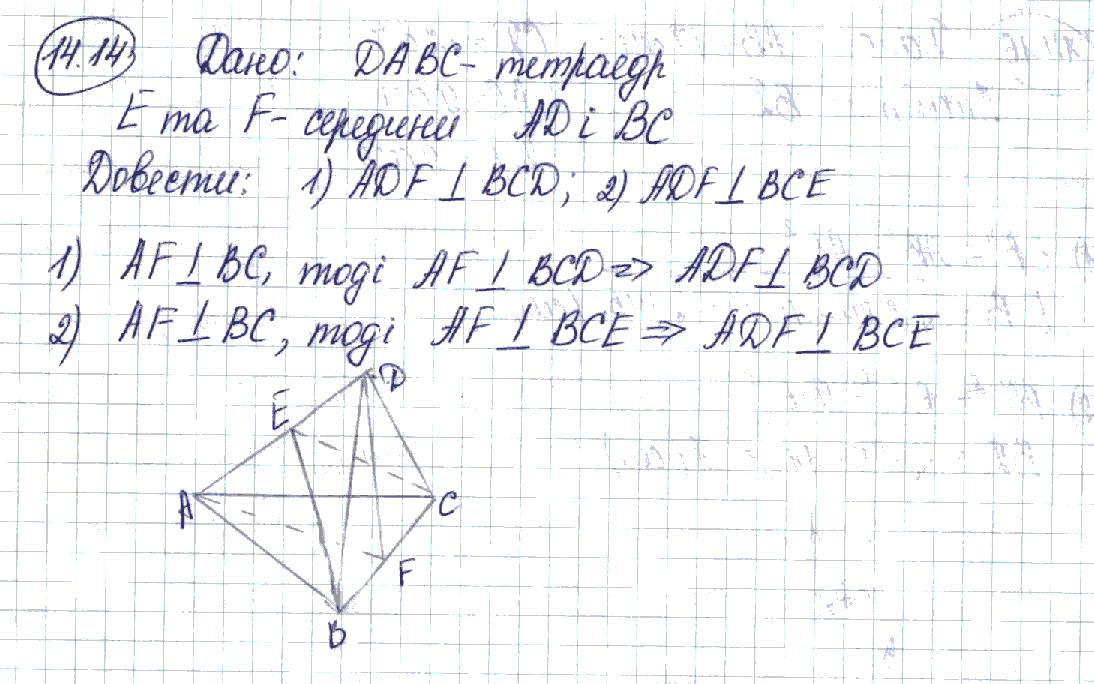 14.14 Дано: DABC - тетраедр
E та F - середини AD і BC
Довести: 1) ADF ⊥ BCD; 2) ADF ⊥ BCE
1) AF ⊥ BC, тоді AF ⊥ BCD => ADF ⊥ BCD
2) AF ⊥ BC, тоді AF ⊥ BCE => ADF ⊥ BCE
D
E
A
C
F
B